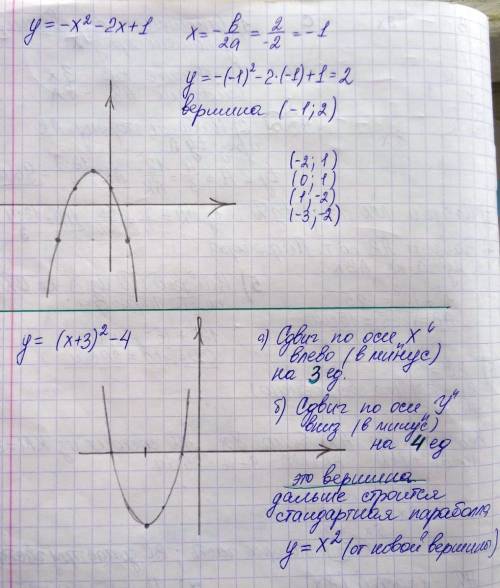 y = -x² - 2x + 1
x = -b/2a = 2/-2 = -1
y = -(-1)² - 2·(-1) + 1 = 2
вершина (-1; 2)
(-2; 1)
(0; 1)
(1; -2)
(-3; -2)
y = (x+3)² - 4
а) Сдвиг по оси "X"
влево (в минус)
на 3 ед.
б) Сдвиг по оси "У"
вниз (в минус)
на 4 ед
это вершина
дальше строится
стандартная парабола
y = x² (от новой вершины)